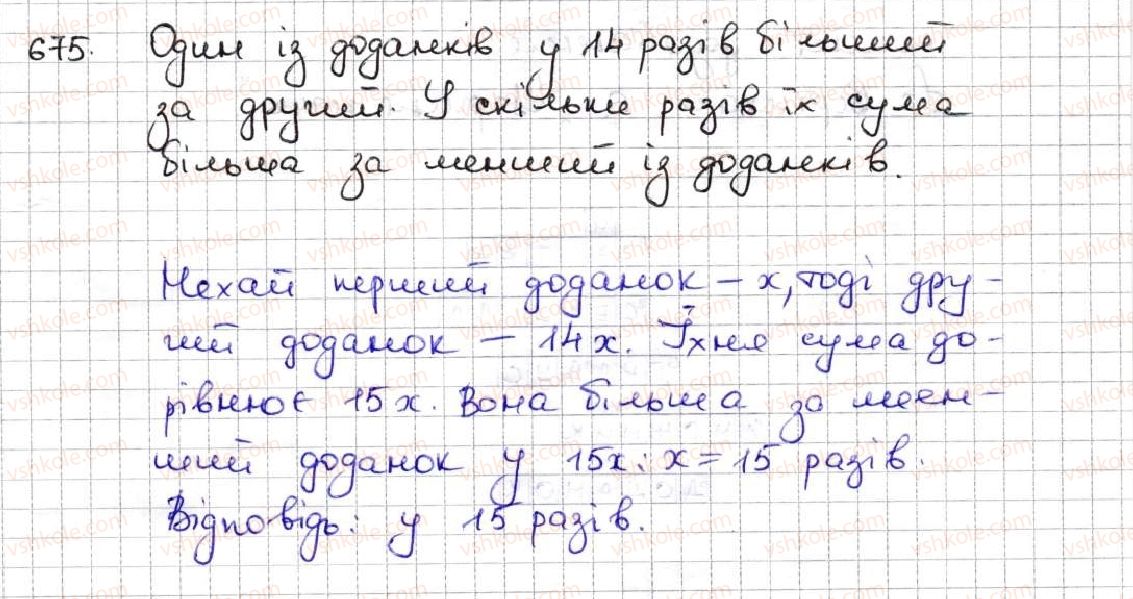 675. Один із доданків у 14 разів більший
за другий. У скільки разів їх сума
більша за менший із доданків.
Нехай перший доданок – х, тоді дру-
гий доданок – 14х. Їхня сума до-
рівнює 15х. Вона більша за мен-
ший доданок у 15х : х = 15 разів.
Відповідь: у 15 разів.